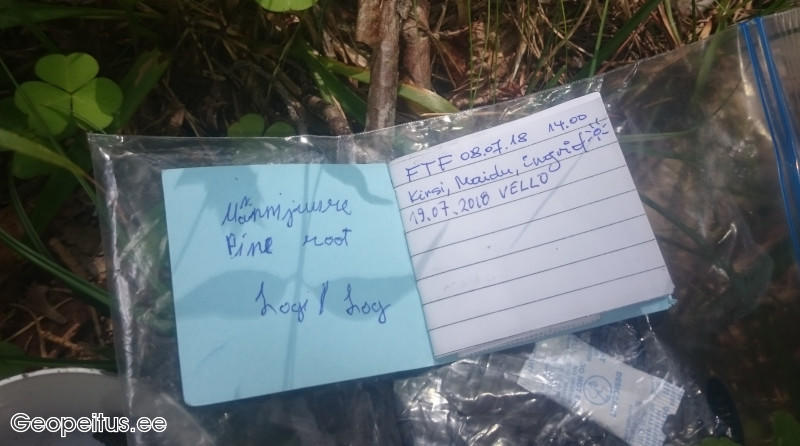 Männijuure
Pine root
Logi / Log
FTF 08.07.18 14.00
Kirsi, Maidu, ingrid
19.07.2018 VELLO
Geopeitus.ee